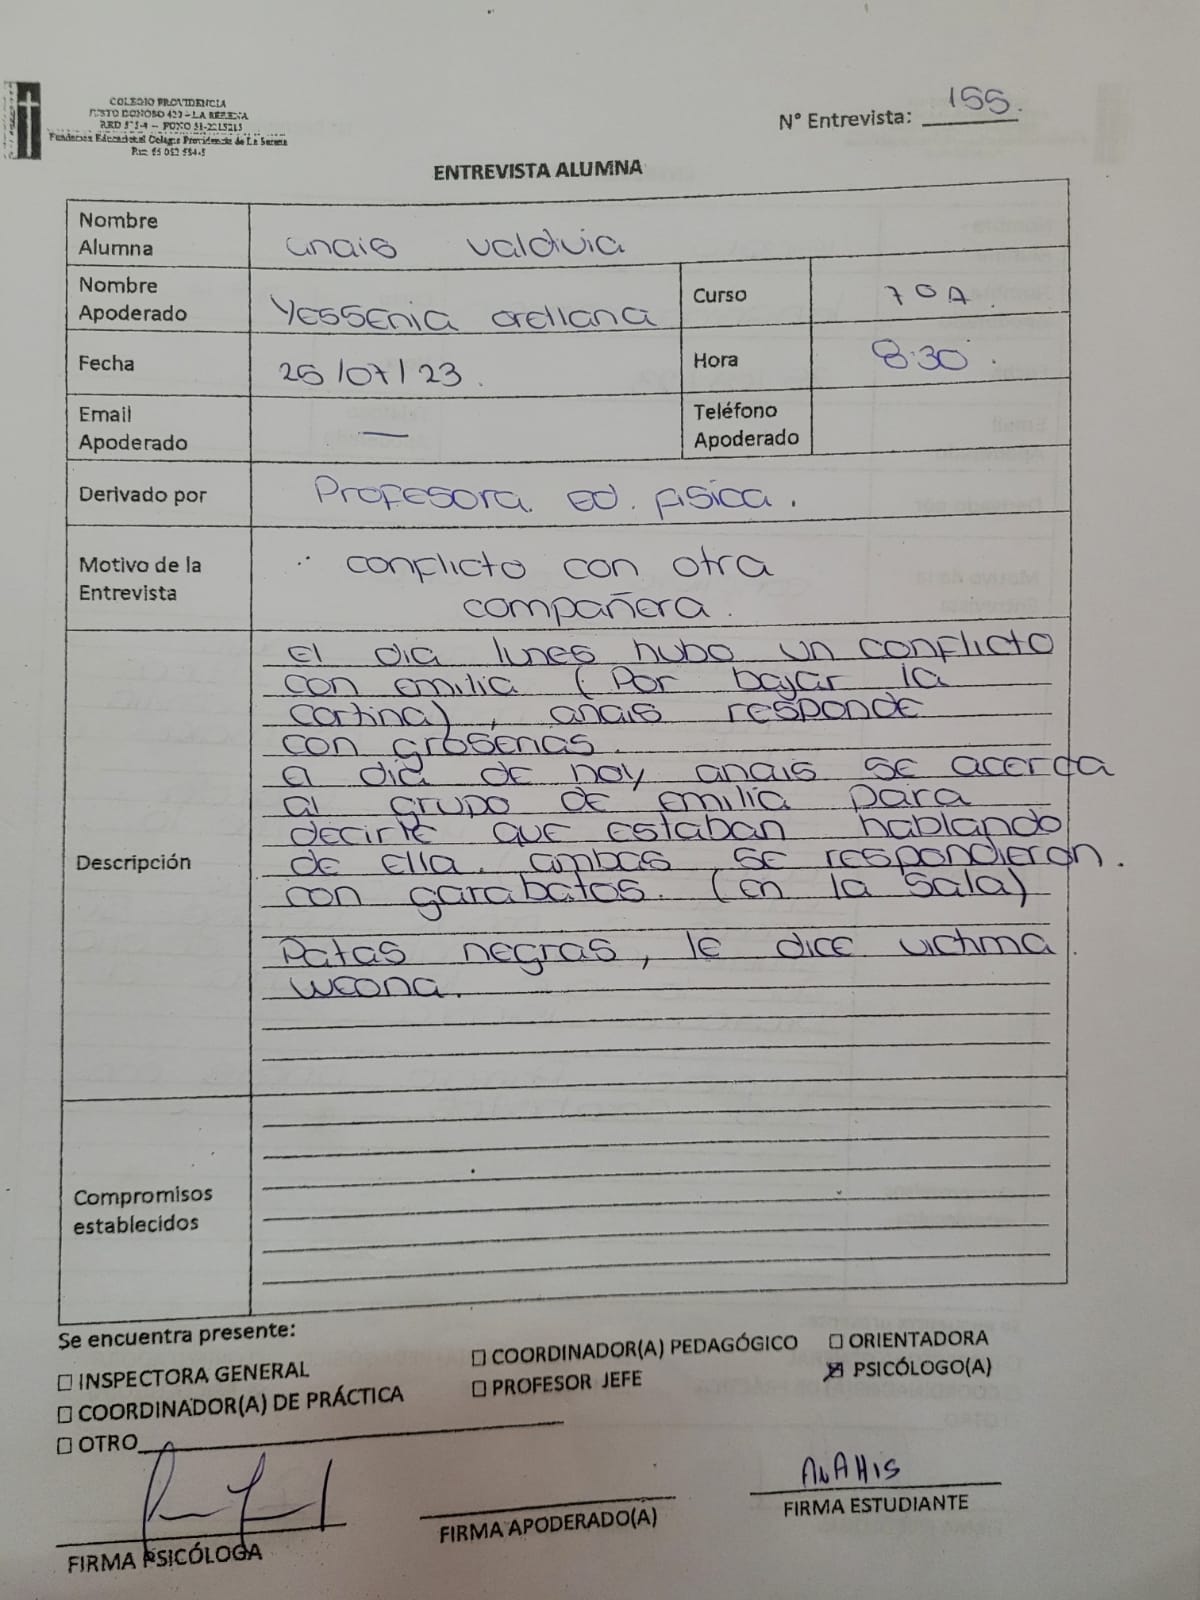 COLEGIO PROVIDENCIA
JUSTO DONOSO 420 - LA SERENA
Fundación Educacional Colegio Providencia de La Serena
N° Entrevista: 155.
ENTREVISTA ALUMNA
Nombre Alumna
anais valdivia
Nombre Apoderado
Yessenia orellana
Curso
7°A.
Fecha
25/07/23.
Hora
8:30.
Email Apoderado
—
Teléfono Apoderado
Derivado por
Profesora. ed. fisica.
Motivo de la Entrevista
conflicto con otra
compañera.
Descripción
el dia lunes hubo un conflicto
con emilia (Por bajar la
cortina), anais responde
con groserias.
el dia de hoy anais se acerca
al grupo de emilia para
decirle que estaban hablando
de ella. ambas se respondieron.
con garabatos. (en la sala)
Patas negras, le dice victima.
weona.
Compromisos establecidos
Se encuentra presente:
☐ INSPECTORA GENERAL
☐ COORDINADOR(A) PEDAGÓGICO
☐ ORIENTADORA
☐ COORDINADOR(A) DE PRÁCTICA
☐ PROFESOR JEFE
☒ PSICÓLOGO(A)
☐ OTRO
ANAHIS
FIRMA PSICÓLOGA
FIRMA APODERADO(A)
FIRMA ESTUDIANTE